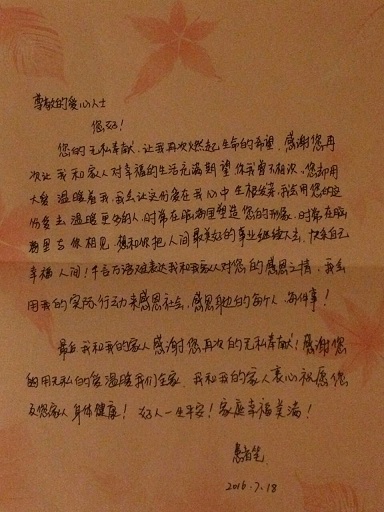 尊敬的爱心人士
您好!
您的无私奉献,让我再次燃起生命的希望,感谢您再
次让我和家人对幸福的生活充满期望,你我素不相识,您却用
大爱温暖着我,我会让这份爱在我心中生根发芽,我会用您的这
份爱去温暖更多的人,时常在脑海里塑造您的形象,时常在脑
海里与你相见,想和你把人间最美好的事业继续下去,
幸福人间!千言万语难表达我和我家人对您的感恩之情,我会
用我的实际行动来感恩社会,感恩身边的每个人,每件事!
最后我和我的家人感谢您再次的无私奉献!感谢您
的用无私的爱温暖我们全家,我和我的家人衷心祝愿您
及您家人身体健康!好人一生平安!家庭幸福美满!
患者笔
2016.7.18